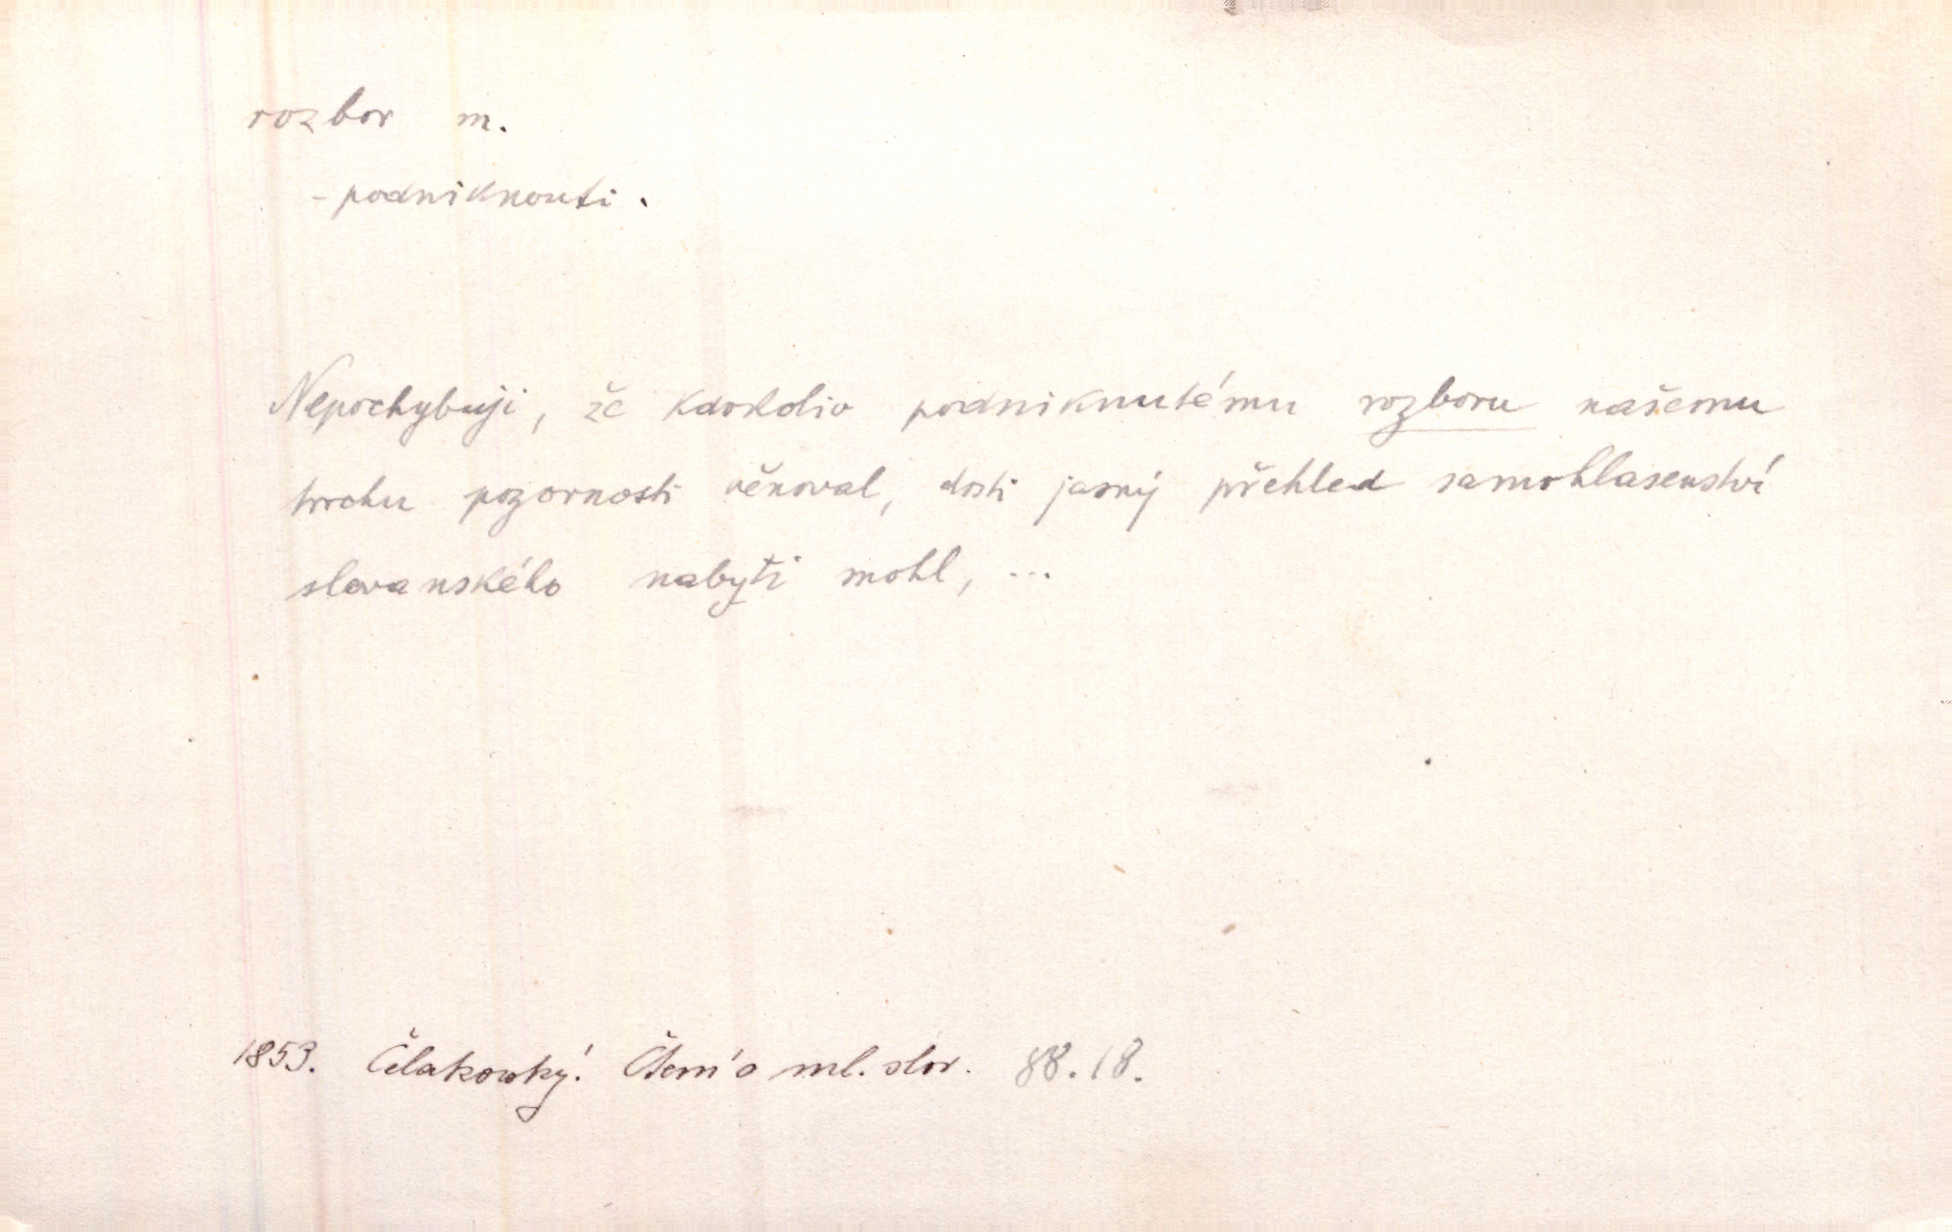 rozbor m.
- podniknouti.
Nepochybuji, že kdokoliv podniknutému rozboru našemu
trochu pozornosti věnoval, dosti jasný přehled samohlasenství
slovanského nabyti mohl, ...
1853. Čelakovský: Čtení o ml. slov. 88.18.